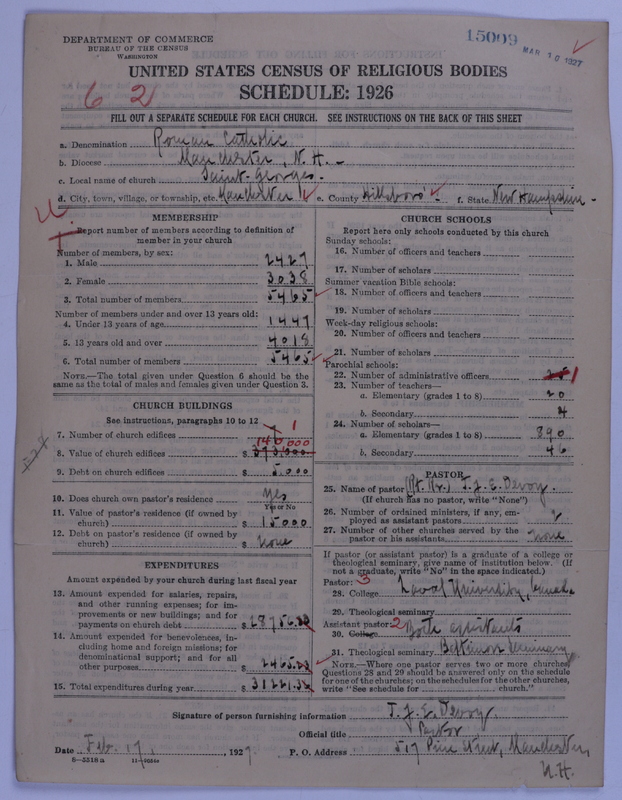 DEPARTMENT OF COMMERCE
BUREAU OF THE CENSUS
WASHINGTON
15009
MAR 10 1927
UNITED STATES CENSUS OF RELIGIOUS BODIES
SCHEDULE: 1926
6 2
FILL OUT A SEPARATE SCHEDULE FOR EACH CHURCH. SEE INSTRUCTIONS ON THE BACK OF THIS SHEET
a. Denomination Roman Catholic
b. Diocese Manchester, N. H.
c. Local name of church Saint Georges.
d. City, town, village, or township, etc. Manchester e. County Hillsboro f. State New Hampshire
MEMBERSHIP
Report number of members according to definition of
member in your church
Number of members, by sex:
1. Male 2427
2. Female 3038
3. Total number of members 5465
Number of members under and over 13 years old:
4. Under 13 years of age 1447
5. 13 years old and over 4018
6. Total number of members 5465
NOTE.—The total given under Question 6 should be the
same as the total of males and females given under Question 3.
CHURCH BUILDINGS
See instructions, paragraphs 10 to 12
7. Number of church edifices 1
140,000
8. Value of church edifices $
9. Debt on church edifices $ 5,000
10. Does church own pastor's residence yes
Yes or No
11. Value of pastor's residence (if owned by
church) $ 15000
12. Debt on pastor's residence (if owned by
church) $ none
EXPENDITURES
Amount expended by your church during last fiscal year
13. Amount expended for salaries, repairs,
and other running expenses; for im-
provements or new buildings; and for
payments on church debt $ 28756.
14. Amount expended for benevolences, in-
cluding home and foreign missions; for
denominational support; and for all
other purposes $ 2465.
15. Total expenditures during year $ 31221.
CHURCH SCHOOLS
Report here only schools conducted by this church
Sunday schools:
16. Number of officers and teachers
17. Number of scholars
Summer vacation Bible schools:
18. Number of officers and teachers
19. Number of scholars
Week-day religious schools:
20. Number of officers and teachers
21. Number of scholars
Parochial schools:
22. Number of administrative officers 1
23. Number of teachers—
a. Elementary (grades 1 to 8) 20
b. Secondary 4
24. Number of scholars—
a. Elementary (grades 1 to 8) 890
b. Secondary 46
PASTOR
25. Name of pastor (Rt. Rev.) T. J. E. Devoy.
(If church has no pastor, write "None")
26. Number of ordained ministers, if any, em-
ployed as assistant pastors 2
27. Number of other churches served by the
pastor or his assistants none
If pastor (or assistant pastor) is a graduate of a college or
theological seminary, give name of institution below. (If
not a graduate, write "No" in the space indicated.)
Pastor: 3
28. College Laval University, Canada
29. Theological seminary
Assistant pastor: 2
30. College Both assistants
31. Theological seminary Baltimore Seminary
NOTE.—Where one pastor serves two or more churches
Questions 28 and 29 should be answered only on the schedule
for one of the churches; on the schedules for the other churches,
write "See schedule for church."
Signature of person furnishing information T. J. E. Devoy.
Official title Pastor
Date Feb. 17, 1927 P. O. Address 517 Pine Street, Manchester,
N.H.
8—5518 a